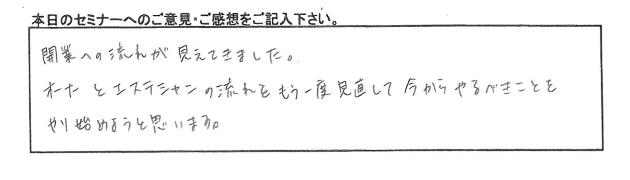 本日のセミナーへのご意見・ご感想をご記入下さい。
開業への流れが見えてきました。
オーナーとエステシャンの流れをもう一度見直して今からやるべきことを
やり始めようと思います。